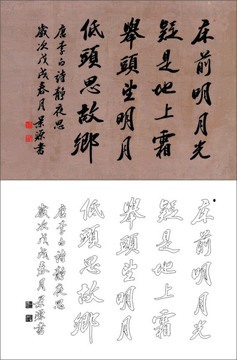 床前明月光
疑是地上霜
舉頭望明月
低頭思故鄉
唐李白詩靜夜思
歲次戊戌春月源書
床前明月光
疑是地上霜
舉頭望明月
低頭思故鄉
唐李白詩靜夜思
歲次戊戌春月源書